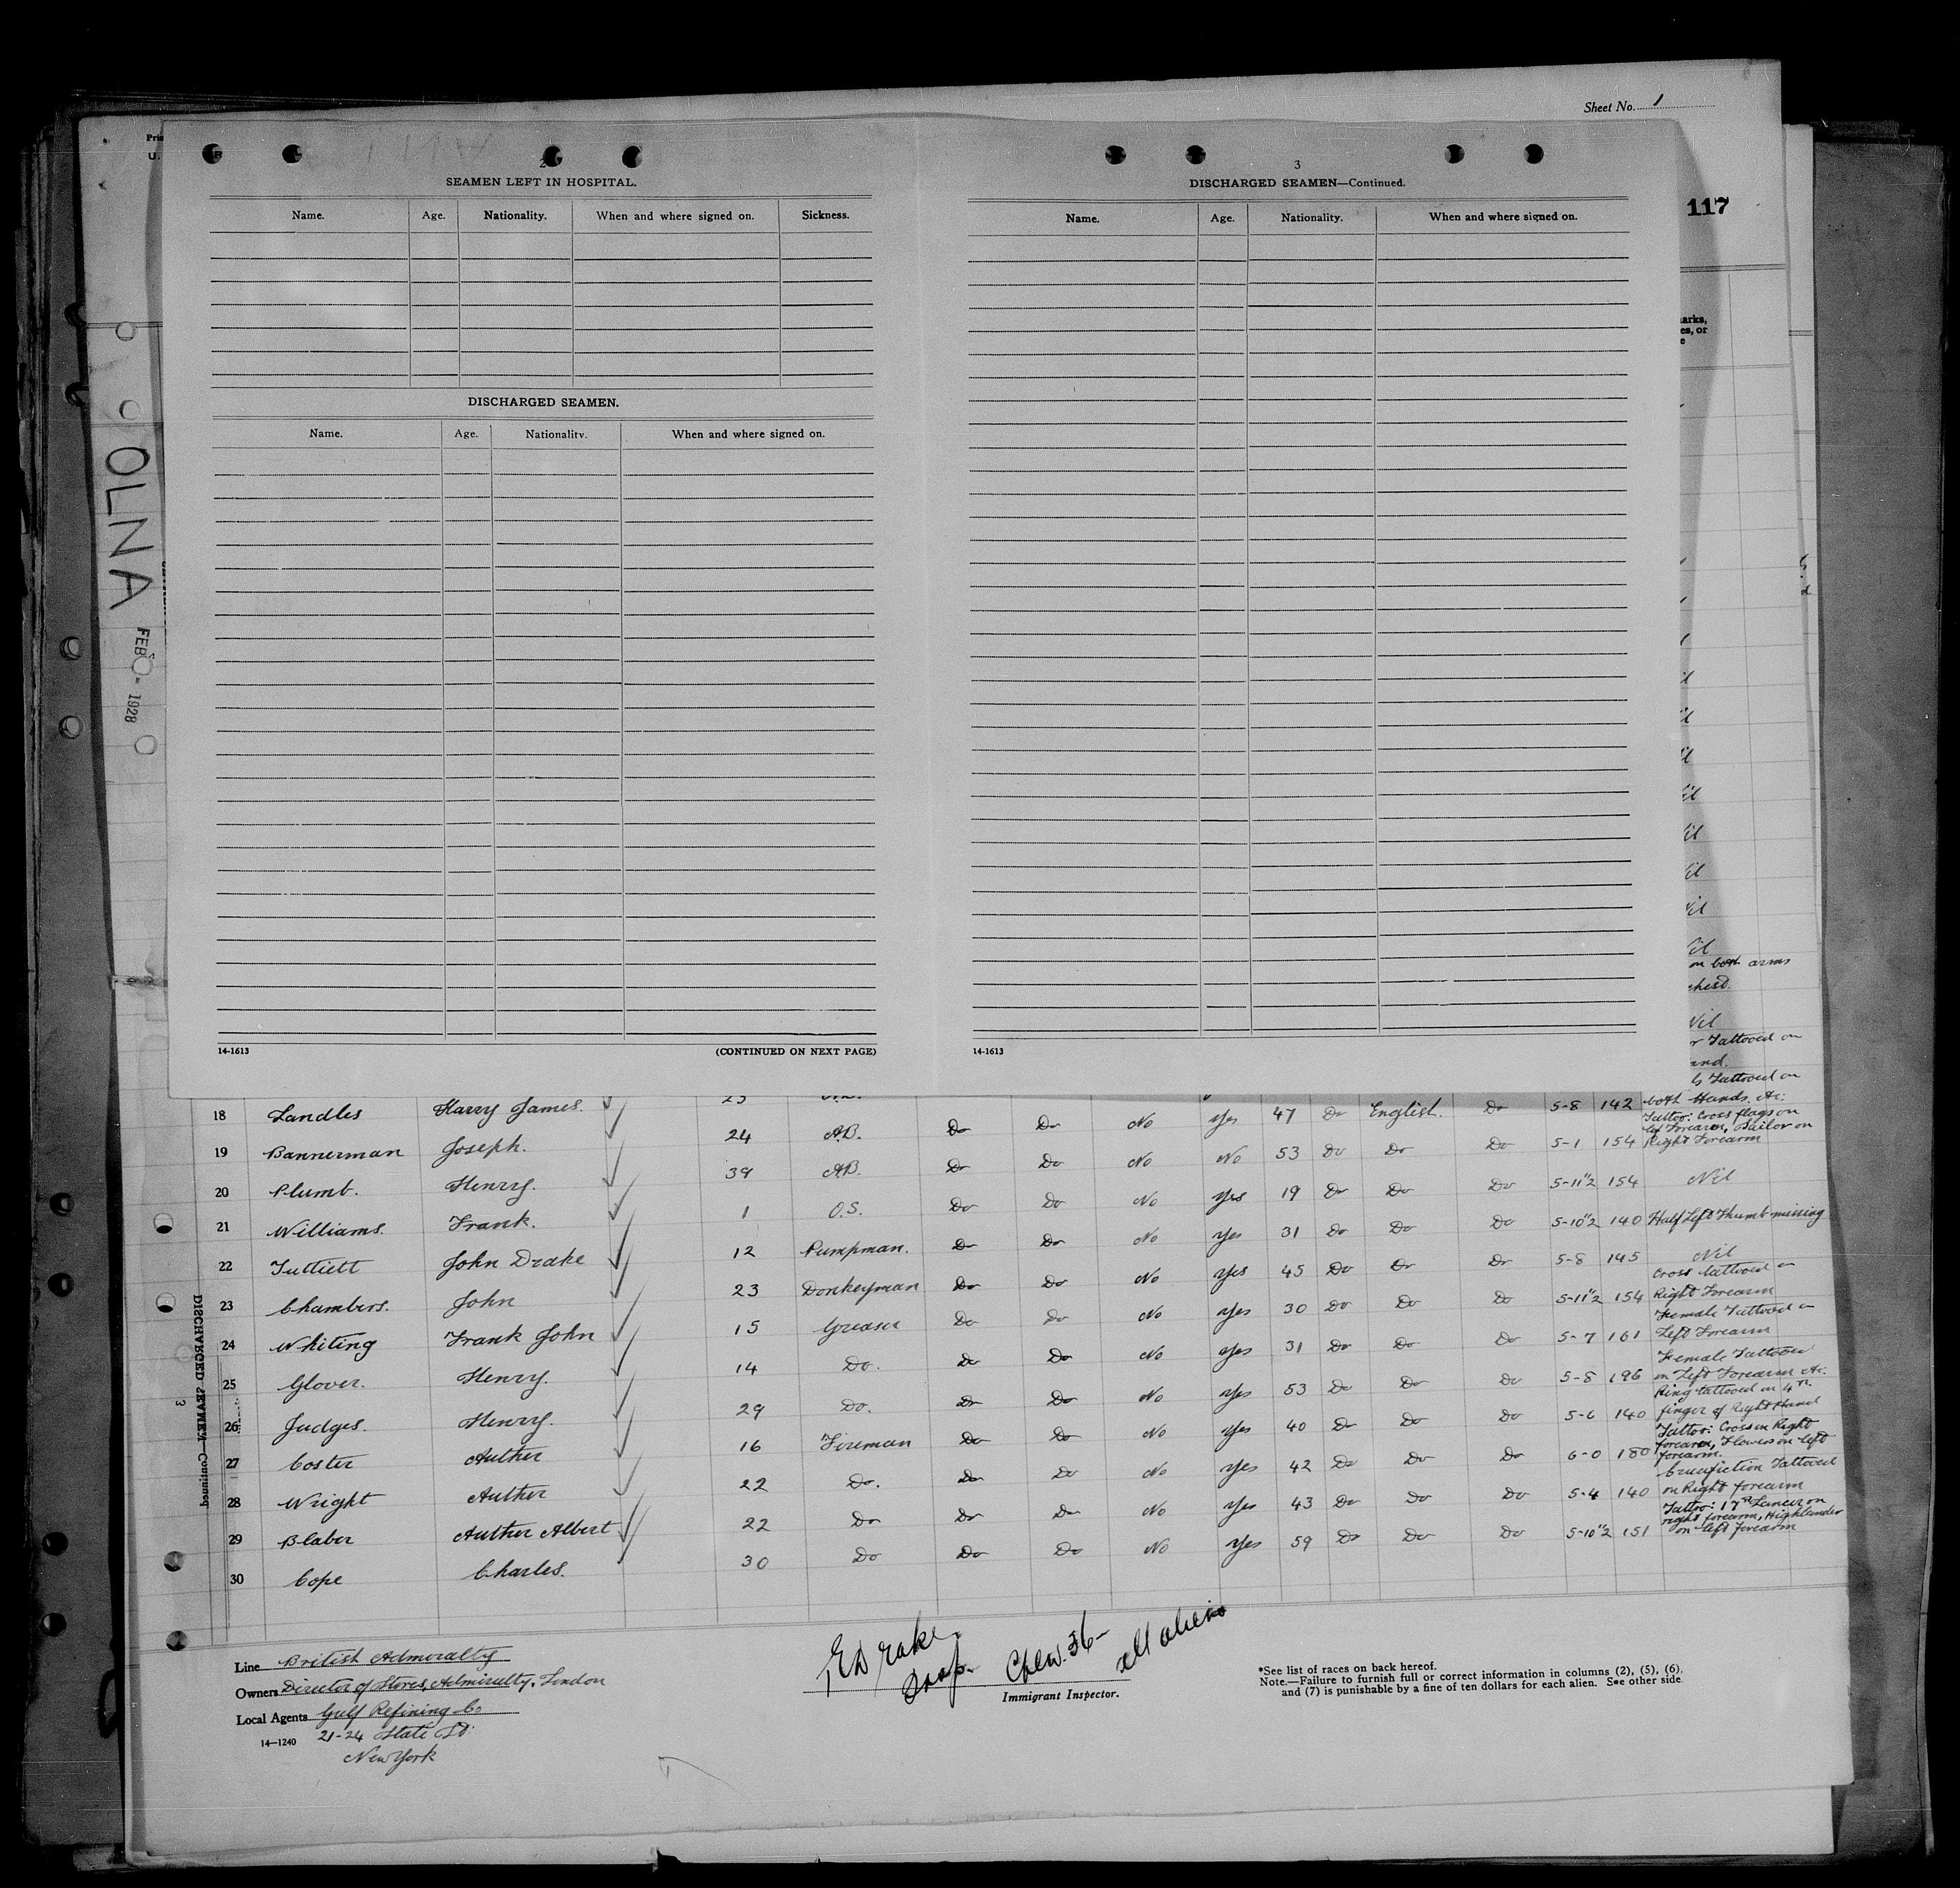 Sheet No. 1
117
2
SEAMEN LEFT IN HOSPITAL.
Name. Age. Nationality. When and where signed on. Sickness.
DISCHARGED SEAMEN.
Name. Age. Nationality. When and where signed on.
14-1613 (CONTINUED ON NEXT PAGE)
3
DISCHARGED SEAMEN—Continued.
Name. Age. Nationality. When and where signed on.
14-1613
OLNA
FEB 1928
on both arms
chest.
Nil
Tattooed on
Tattooed on
both Hands, etc:
18 Landles Harry James. 24 A.B. Do Do No Yes 47 Do English. Do 5-8 142 Tattoo: Cross flags on left Forearm, Sailor on Right Forearm
19 Bannerman Joseph. 39 A.B. Do Do No No 53 Do Do Do 5-1 154
20 Plumb. Henry. 1 O.S. Do Do No Yes 19 Do Do Do 5-11½ 154 Nil
21 Williams. Frank. 12 Pumpman. Do Do No Yes 31 Do Do Do 5-10½ 140 Half Left Thumb missing
22 Tuttiett John Drake 23 Donkeyman Do Do No Yes 45 Do Do Do 5-8 145 Nil
23 Chambers. John 15 Greaser Do Do No Yes 30 Do Do Do 5-11½ 154 Cross tattooed on Right Forearm
24 Whiting Frank John 14 Do. Do Do No Yes 31 Do Do Do 5-7 161 Female Tattooed on Left Forearm
25 Glover. Henry. 29 Do. Do Do No Yes 53 Do Do Do 5-8 196 Female Tattooed on Left Forearm etc:
26 Judges. Henry. 16 Fireman Do Do No Yes 40 Do Do Do 5-6 140 Ring tattooed on 4th. finger of Right Hand
27 Coster Auther 22 Do. Do Do No Yes 42 Do Do Do 6-0 180 Tattoo: Cross on Right forearm, Flowers on left forearm.
28 Wright Auther 22 Do Do Do No Yes 43 Do Do Do 5-4 140 Crucifiction Tattooed on Right forearm
29 Blaber Auther Albert 30 Do Do Do No Yes 59 Do Do Do 5-10½ 151 Tattoo: 17th Lancer on right forearm, Highlander on left forearm
30 Cope Charles.
DISCHARGED SEAMEN—Continued.
3
Line British Admiralty
Owners Director of Stores, Admiralty, London
Local Agents Gulf Refining Co
14—1240 21-24 State St.
New York
E Drake
Insp.
Crew. 36—
all aliens
Immigrant Inspector.
*See list of races on back hereof.
Note.—Failure to furnish full or correct information in columns (2), (5), (6),
and (7) is punishable by a fine of ten dollars for each alien. See other side.